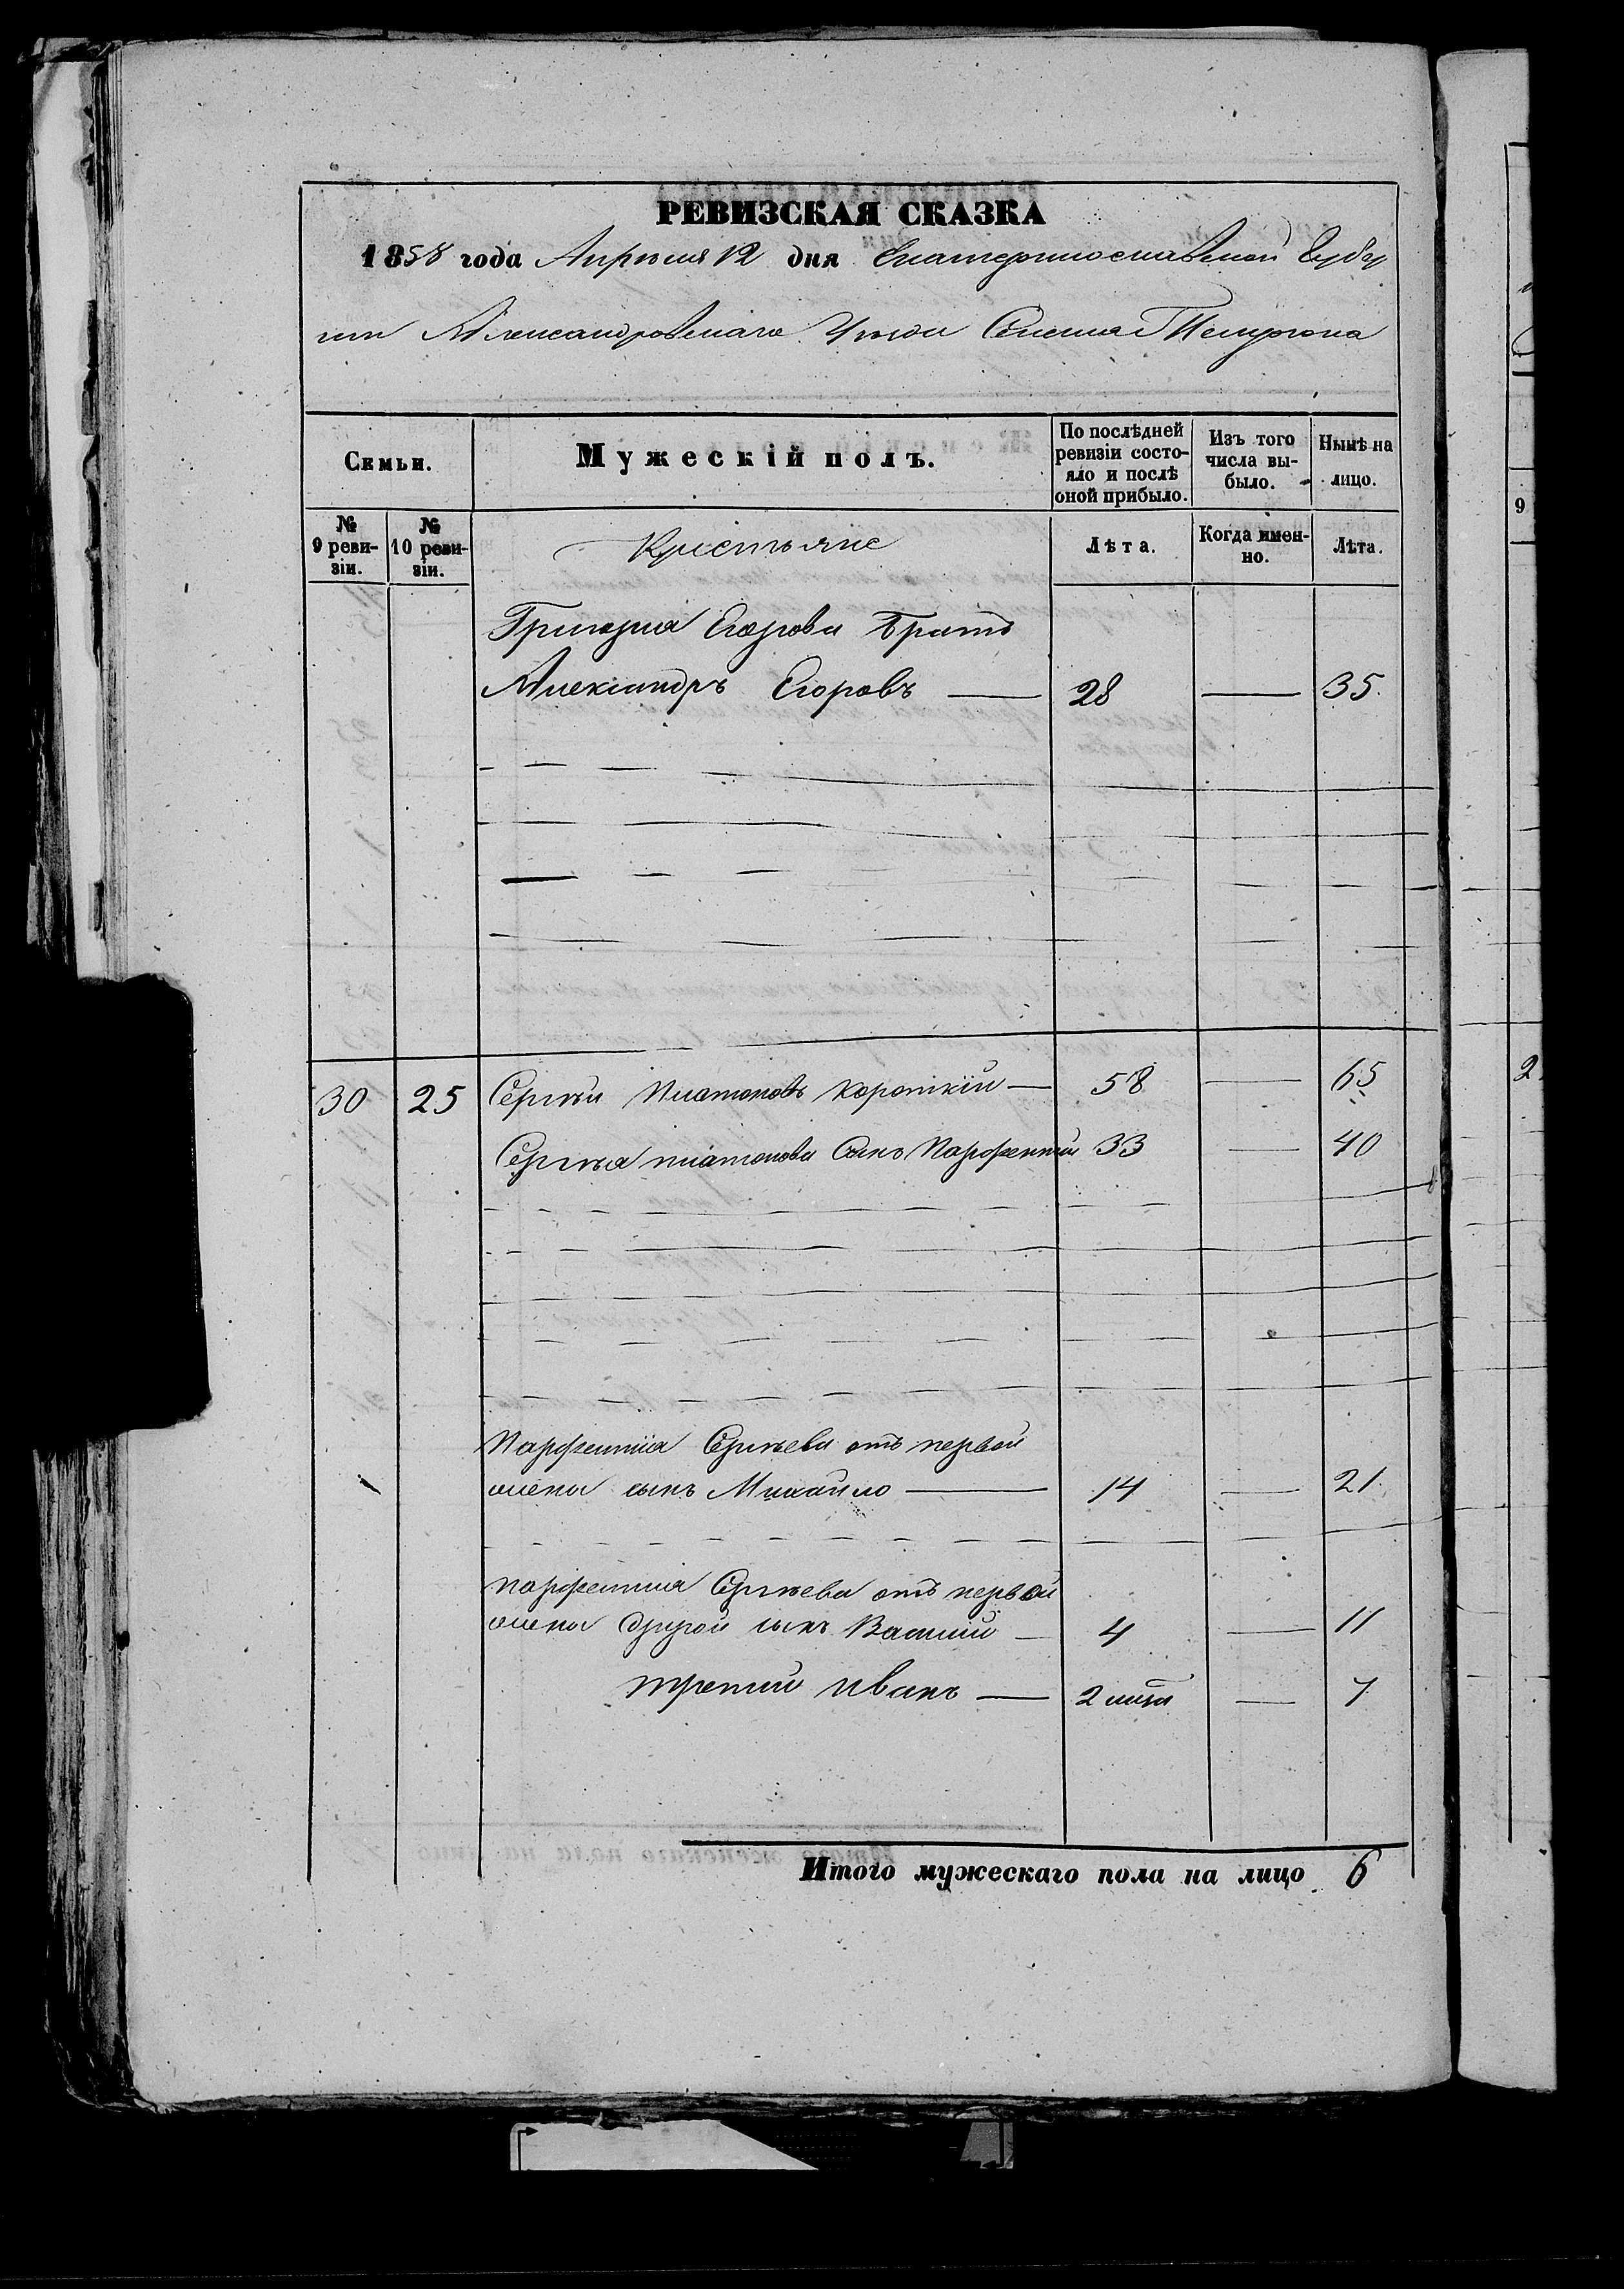 РЕВИЗСКАЯ СКАЗКА
1858 года Апреля 12 дня Екатеринославской Губер
нии Александровскаго Уезда Селения Темрюка
Семьи.
Мужескій полъ.
По послѣдней ревизіи состо-
яло и послѣ оной прибыло.
Изъ того числа вы-
было.
Нынѣ на лицо.
№ 9 реви-
зіи.
№ 10 реви-
зіи.
Крестьяне
Лѣта.
Когда имен-
но.
Лѣта.
Григория Егорова Братъ
Александръ Егоровъ — 28 — 35.
30 25 Сергѣй Платоновъ Короткій — 58 — 65
Сергѣя платонова Сынъ Парфентий 33 — 40
Парфентия Сергѣева отъ первой
жены сынъ Михайло — 14 — 21.
парфентия Сергѣева отъ первой
жены другой сынъ Василий — 4 — 11
третий иванъ — 2 — 7
Итого мужескаго пола на лицо 6
9
2